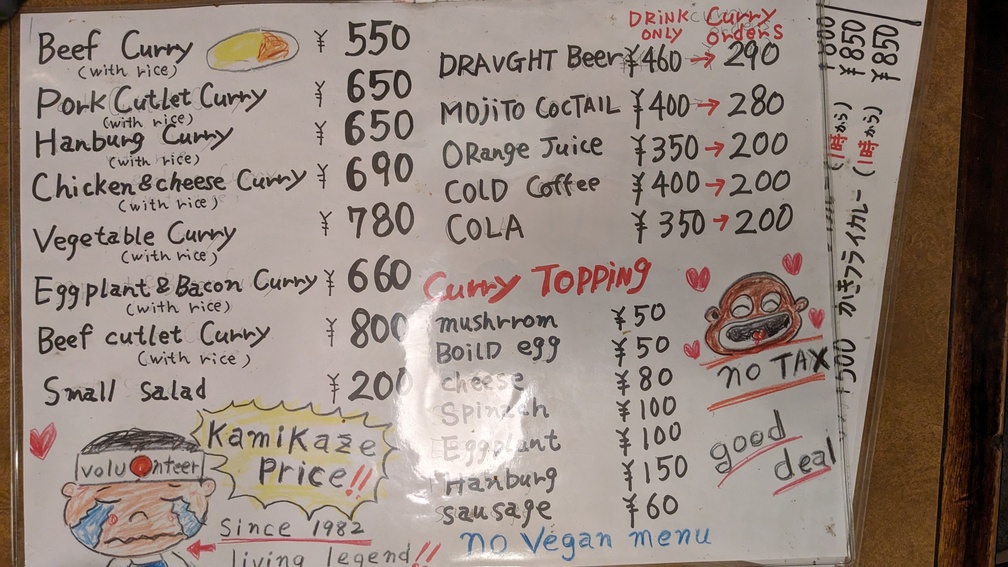 Beef Curry ¥ 550
(with rice)
Pork Cutlet Curry ¥ 650
(with rice)
Hanburg Curry ¥ 650
(with rice)
Chicken & cheese Curry ¥ 690
(with rice)
Vegetable Curry ¥ 780
(with rice)
Eggplant & Bacon Curry ¥ 660
(with rice)
Beef cutlet Curry ¥ 800
(with rice)
Small Salad ¥ 200
Kamikaze
Price!!
volunteer
Since 1982
living legend!!
DRINK ONLY
Curry orders
DRAVGHT Beer ¥460 → 290
MOJITO COCTAIL ¥400 → 280
ORange Juice ¥350 → 200
COLD Coffee ¥400 → 200
COLA ¥350 → 200
Curry TOPPING
mushrrom ¥50
BOILD egg ¥50
cheese ¥80
Spinach ¥100
Eggplant ¥100
Hanburg ¥150
sausage ¥60
no Vegan menu
no TAX
good
deal
¥850
¥850
(1時から)
(1時から)
かきフライカレー